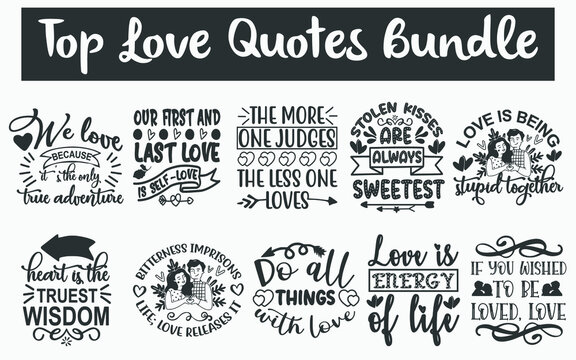 Top Love Quotes Bundle
We love
BECAUSE
it's the only
true adventure
OUR FIRST AND
LAST LOVE
IS SELF-LOVE
THE MORE
ONE JUDGES
THE LESS ONE
LOVES
STOLEN KISSES
ARE
ALWAYS
SWEETEST
LOVE IS BEING
stupid together
heart is the
TRUEST
WISDOM
BITTERNESS IMPRISONS
LIFE; LOVE RELEASES IT
Do all
THINGS
with love
Love is
ENERGY
of life
IF YOU WISHED
TO BE
LOVED, LOVE